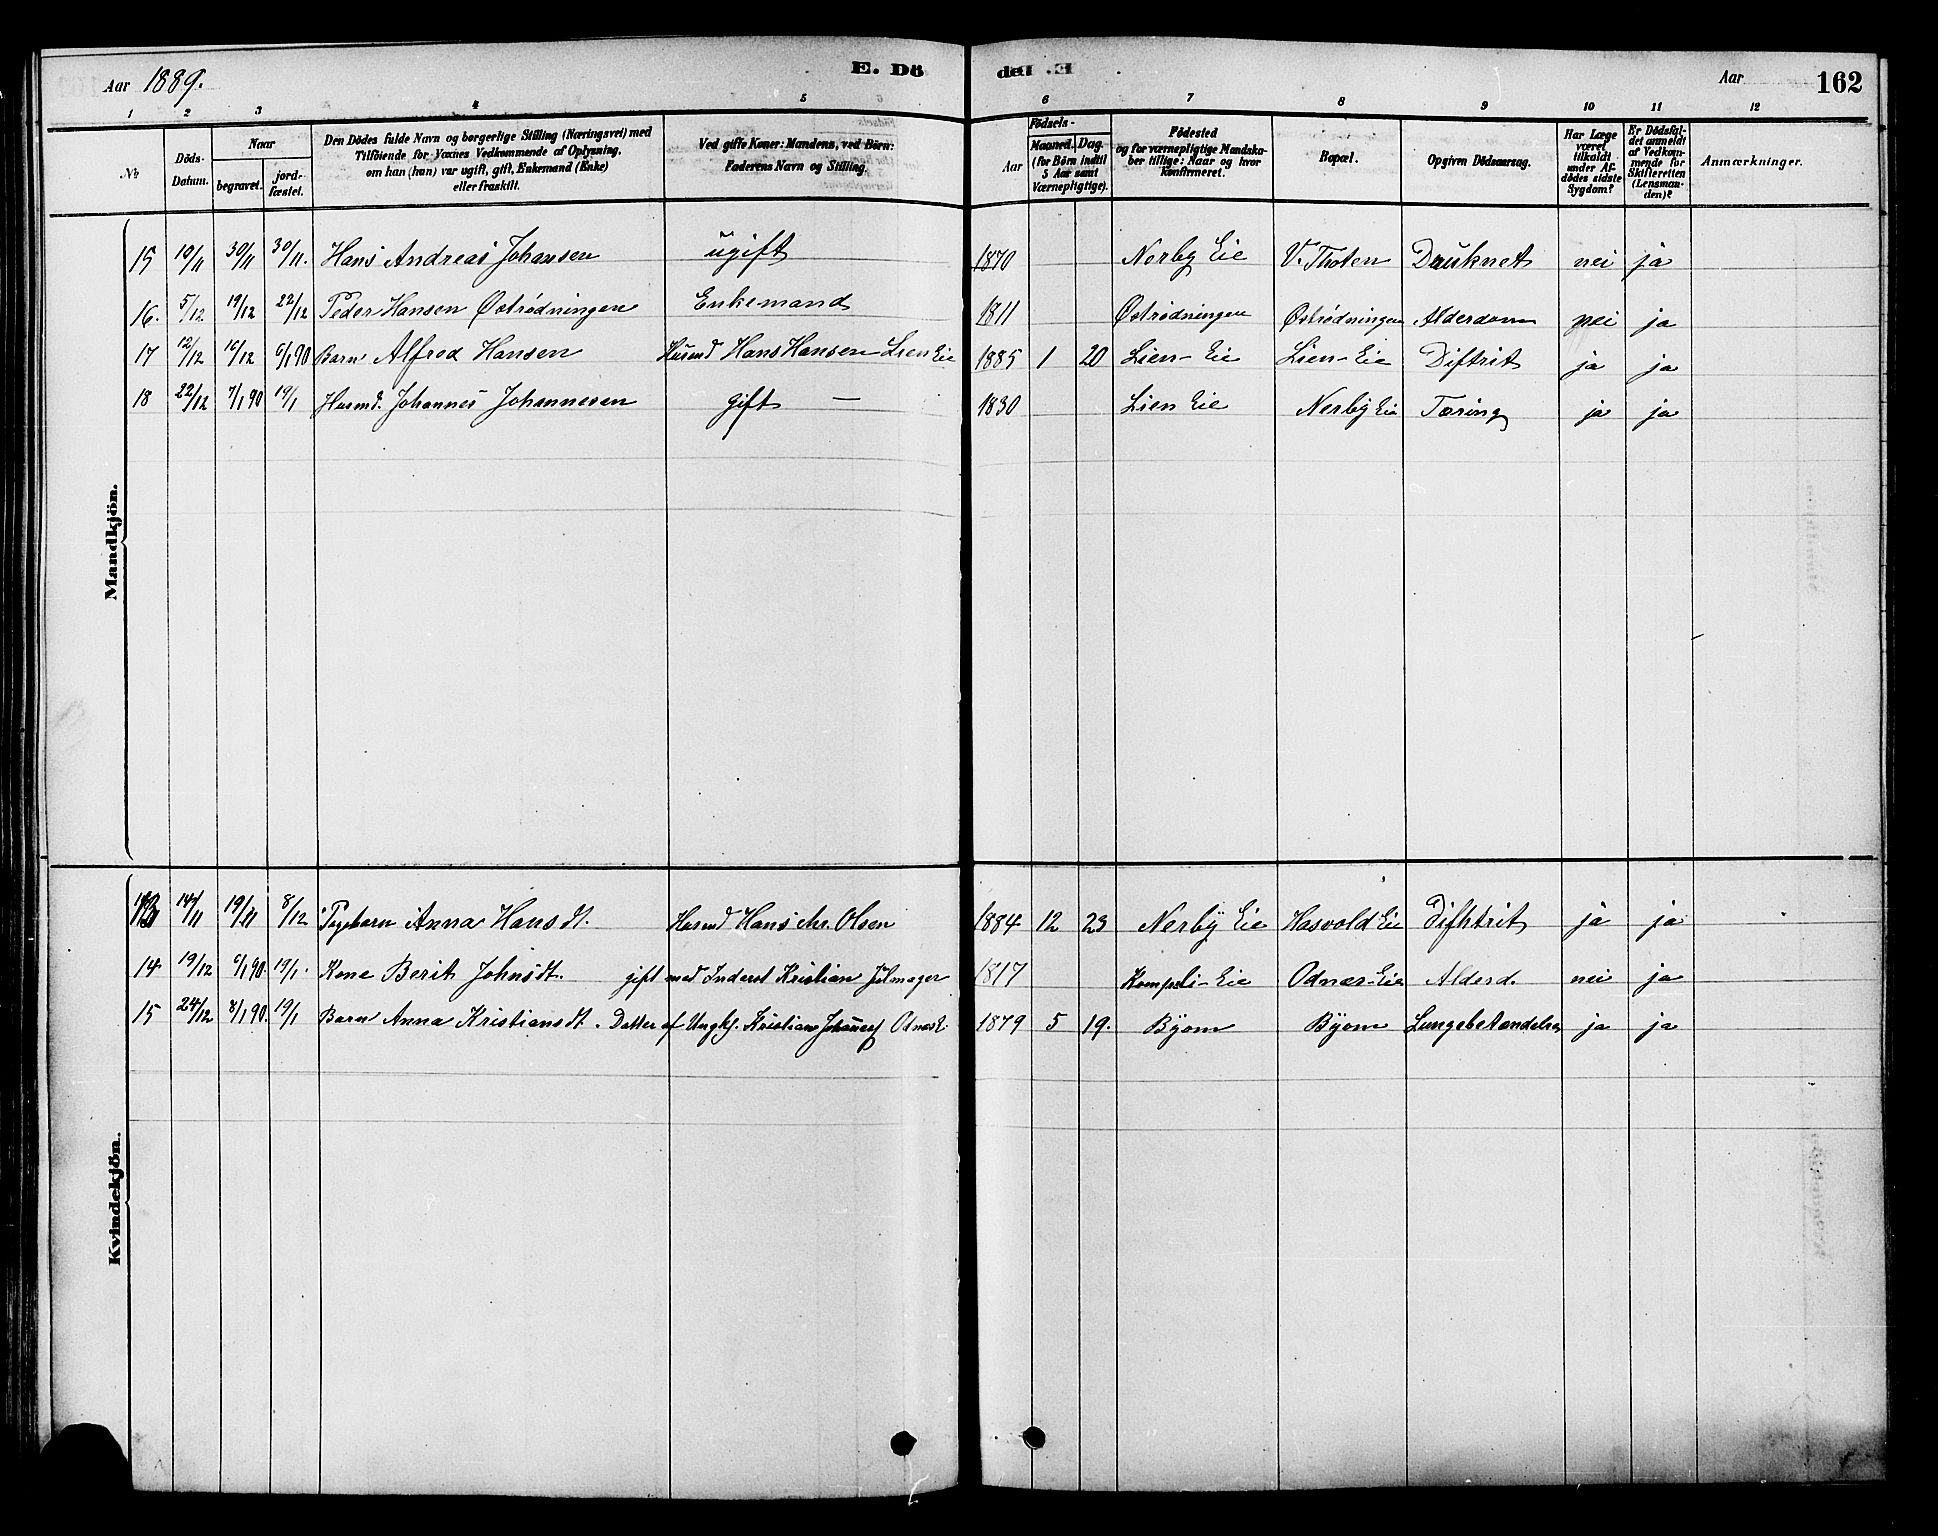 Aar 1889. E. Dö
1 2 3 4 5
№ Döds-Datum. Naar begravet. jord-fæstet. Den Dödes fulde Navn og borgerlige Stilling (Næringsvei) med Tilföiende for Voxnes Vedkommende af Oplysning, om han (hun) var ugift, gift, Enkemand (Enke) eller fraskilt. Ved gifte Koner: Mandens, ved Börn: Faderens Navn og Stilling.
Mandkjön.
15 19/11 30/11 30/11. Hans Andreas Johansen ugift
16. 5/12 19/12 22/12 Peder Hansen Østrødningen Enkemand
17 12/12 16/12 6/1 90 Barn Alfred Hansen Husmd Hans Hansen Lien Eie
18 22/12 7/1 90 19/1 Husmd. Johannes Johannesen gift —
Kvindekjön.
13 14/11 19/11 8/12 Pigebarn Anna Hansdt. Husmd Hans Chr. Olsen
14 19/12 6/1 90 19/1. Kone Berit Johnsdt. gift med Inderst Kristian Julmager
15 24/12 8/1 90. 19/1 Barn Anna Kristiansdt. Datter af Ungk. Kristian Johannes Odnæs E.
del E. Aar 162
6 7 8 9 10 11 12
Aar Födsels- Maaned. Dag. (for Börn indtil 5 Aar samt Værnepligtige). Födested og for værnepligtige Mandskaber tillige: Naar og hvor konfirmeret. Bopæl. Opgiven Dödsaarsag. Har Læge været tilkaldt under Afdödes sidste Sygdom? Er Dödsfaldet anmeldt af Vedkommende for Skifteretten (Lensmanden)? Anmærkninger.
1870 Norby Eie V. Thoten Druknet nei ja
1811 Østrødningen Østrødningen Alderdom nei ja
1885 1 20 Lien-Eie Lien-Eie Diftrit ja ja
1830 Lien Eie Nerby Eie Tæring ja ja
1884 12 23 Nerby Eie Hasvold Eie Difhtrit ja ja
1817 Kompeli-Eie Odnæs-Eie Alderd. nei ja
1879 5 19. Byom Byom Lungebetændelse ja ja